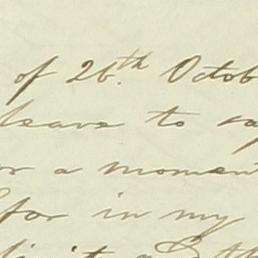 of 26th. Octob
leave to say
or a moment
for in my